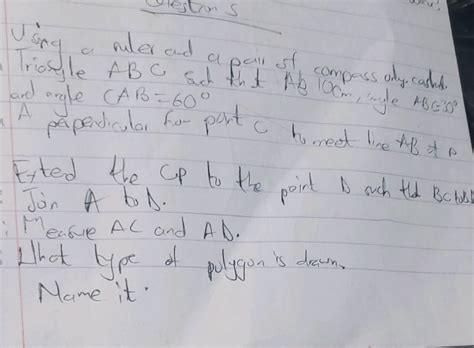 Question 5
Using a ruler and a pair of compass only, construct
Triangle ABC such that AB 10cm, angle ABC=30°
and angle CAB=60°
A perpendicular from point C to meet line AB at P
Extend the CP to the point D such that BC
Join A to D.
Measure AC and AD.
What type of polygon is drawn.
Name it.